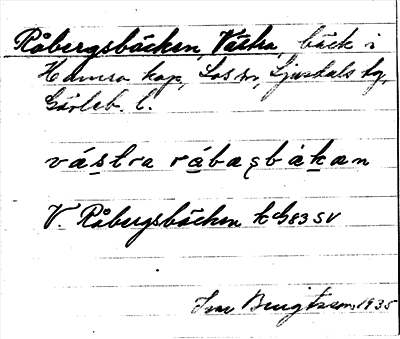 Råbergsbäcken, Västra, bäck i
Hamra kap, Los sn, Ljusdals tg,
Gävleb. l.
västra råbaʂbäkan
V. Råbergsbäcken kbg83SV
Bengtsson 1935